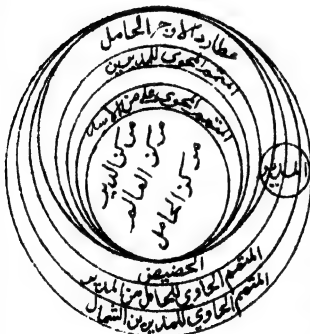 عطارد الاوج الحامل
المتمم المحوى للمديرين
المتمم المحوى
مركز المدير
مركز العالم
مركز الحامل
المدير
الحضيض
المتمم الحاوى للحامل من المدير
المتمم الحاوى للمديرين الشمال